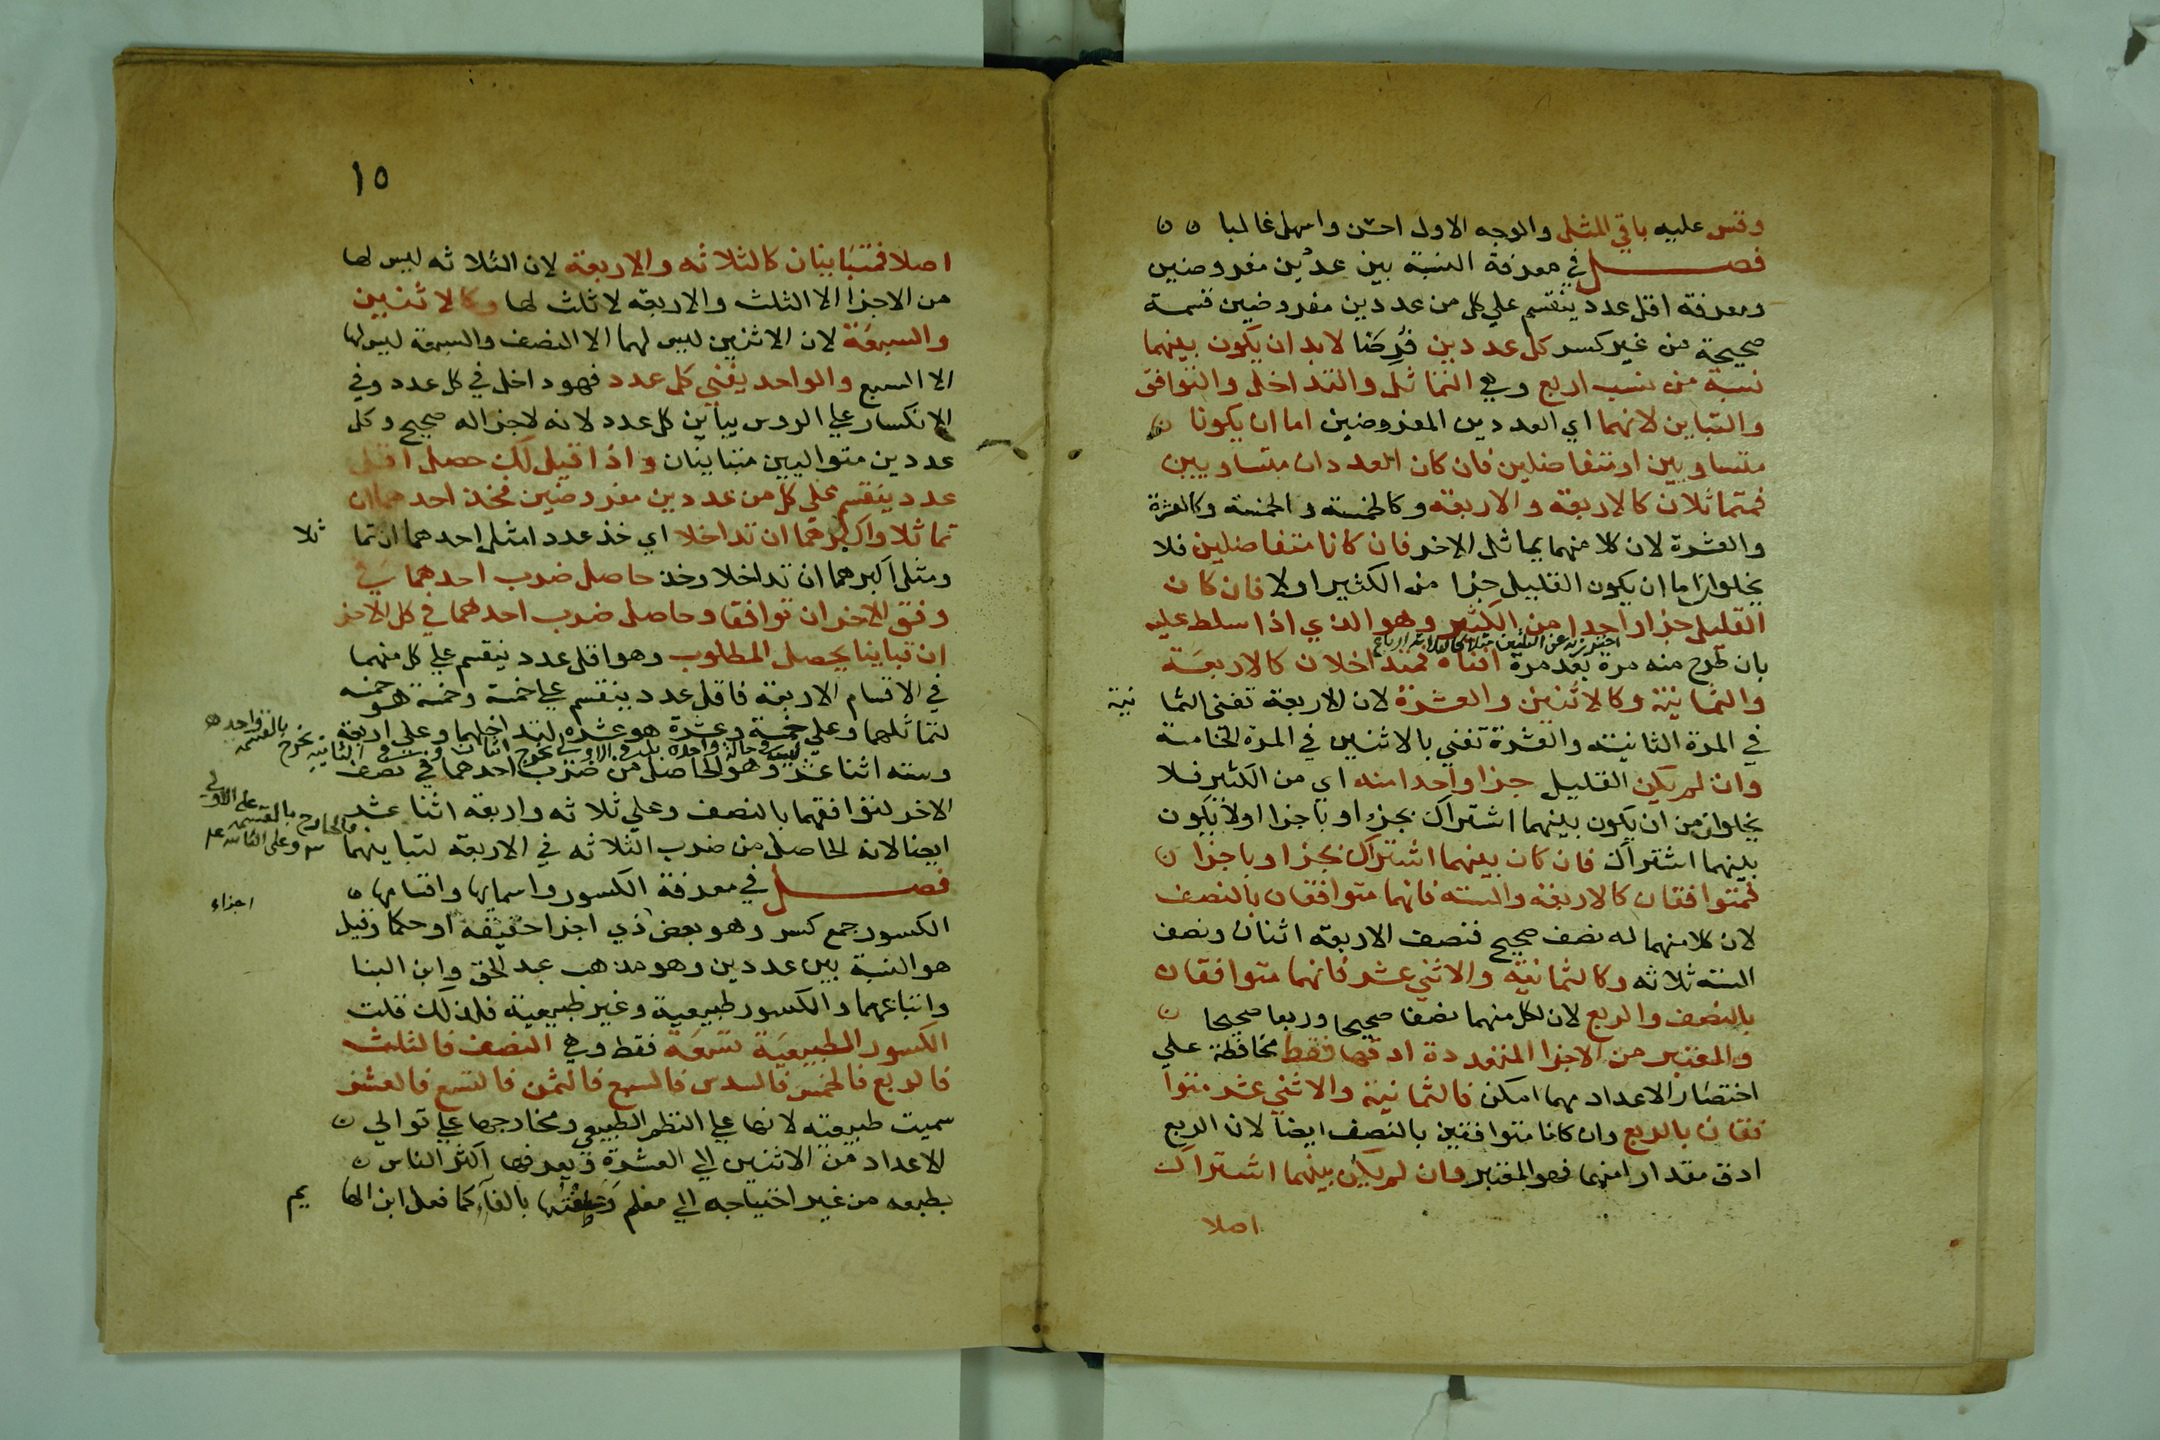 وقس عليه باقي المثل والوجه الاول احسن واسهل غالبا ن ن
فصل في معرفة النسبة بين عددين مفروضين
ومعرفة اقل عدد ينقسم علي كل من عددين مفروضين قسمة
صحيحة من غير كسر كل عددين فُرِضَا لابد ان يكون بينهما
نسبة من نسب اربع وهي التماثل والتداخل والتوافق
والتباين لانهما اي العددين المفروضين اما ان يكونا ن
متساويين او متفاضلين فان كان العددان متساويين
فمتماثلان كالاربعة والاربعة وكالخمسة والخمسة وكالعشرة
والعشرة لان كلا منهما يماثل الاخر فان كانا متفاضلين فلا
يخلوا اما ان يكون القليل جزا من الكثير اولا فان كان
القليل جزا واحدا من الكثير وهو الذي اذا سلط عليه
بان طرح منه مرة بعد مرة افناه فمتداخلان كالاربعة
والثمانية وكالاثنين والعشرة لان الاربعة تفني الثما نية
في المرة الثانية والعشرة تفني بالاثنين في المرة الخامسة
وان لم يكن القليل جزا واحدا منه اي من الكثير فلا
يخلوا من ان يكون بينهما اشتراك بجزء او باجزا اولا يكون
بينهما اشتراك فان كان بينهما اشتراك بجزا او باجزا ن
فمتوافقان كالاربعة والستة فانهما متوافقان بالنصف
لان كلا منهما له نصف صحيح فنصف الاربعة اثنان ونصف
الستة ثلاثه وكالثمانية والاثني عشر فانهما متوافقان
بالنصف والربع لان لكل منهما نصفا صحيحا وربعا صحيحا ن
والمعتبر من الاجزا المتعددة ادقها فقط محافظة علي
اختصار الاعداد مهما امكن فالثمانية والاثني عشر متوا
فقان بالربع وان كانا متوافقين بالنصف ايضا لان الربع
ادق مقدارا منهما فهو المعتبر وان لم يكن بينهما اشتراك
اصلا
١٥
اصلا فمتباينان كالثلاثه والاربعة لان الثلاثه ليس لها
من الاجزا الا الثلث والاربعه لا ثلث لها وكالاثنين
والسبعة لان الاثنين ليس لهما الا النصف والسبعة ليس لها
الا السبع والواحد يفني كل عدد فهو داخل في كل عدد وفي
الانكسار علي الروس يباين كل عدد لانه لا جزا له صحيح وكل
عددين متواليين متباينان واذا قيل لك حصل اقل
عدد ينقسم علي كل من عددين مفروضين فخذ احدهما ان
تماثلا واكبرهما ان تداخلا اي خذ عددا مثل احدهما ان تما ثلا
ومثل اكبرهما ان تداخلا وخذ حاصل ضرب احدهما في
وفق الاخر ان توافقا وحاصل ضرب احدهما في كل الاخر
ان تباينا يحصل المطلوب وهو اقل عدد ينقسم علي كل منهما
في الاقسام الاربعة فاقل عدد ينقسم علي خمسة وخمسة هو خمسه
لتماثلهما وعلي خمسة وعشرة هو عشره لتداخلهما وعلي اربعة
وسته اثنا عشر وهو الحاصل من ضرب احدهما في نصف
الاخر لتوافقهما بالنصف وعلي ثلاثه واربعة اثنا عشر
ايضا لانه الحاصل من ضرب الثلاثه في الاربعة لتباينهما
فصل في معرفة الكسور واسمايها واقسامها ن
الكسور جمع كسر وهو بعض ذي اجزا حقيقة او حكما وقيل
اجزاء
هو النسبة بين عددين وهو مذهب عبد الحق وابن البنا
واتباعهما والكسور طبيعية وغير طبيعية فلذلك قلت
الكسور الطبيعية تسعة فقط وهي النصف فالثلث
فالربع فالخمس فالسدس فالسبع فالثمن فالتسع فالعشر
سميت طبيعيه لانها علي النظم الطبيعي ومخارجها علي توالي ن
الاعداد من الاثنين الي العشرة ويعرفها اكثر الناس ن
بطبعه من غير احتياجه الي معلم وعطفتُها بالفآء كما فعل ابن الها يم